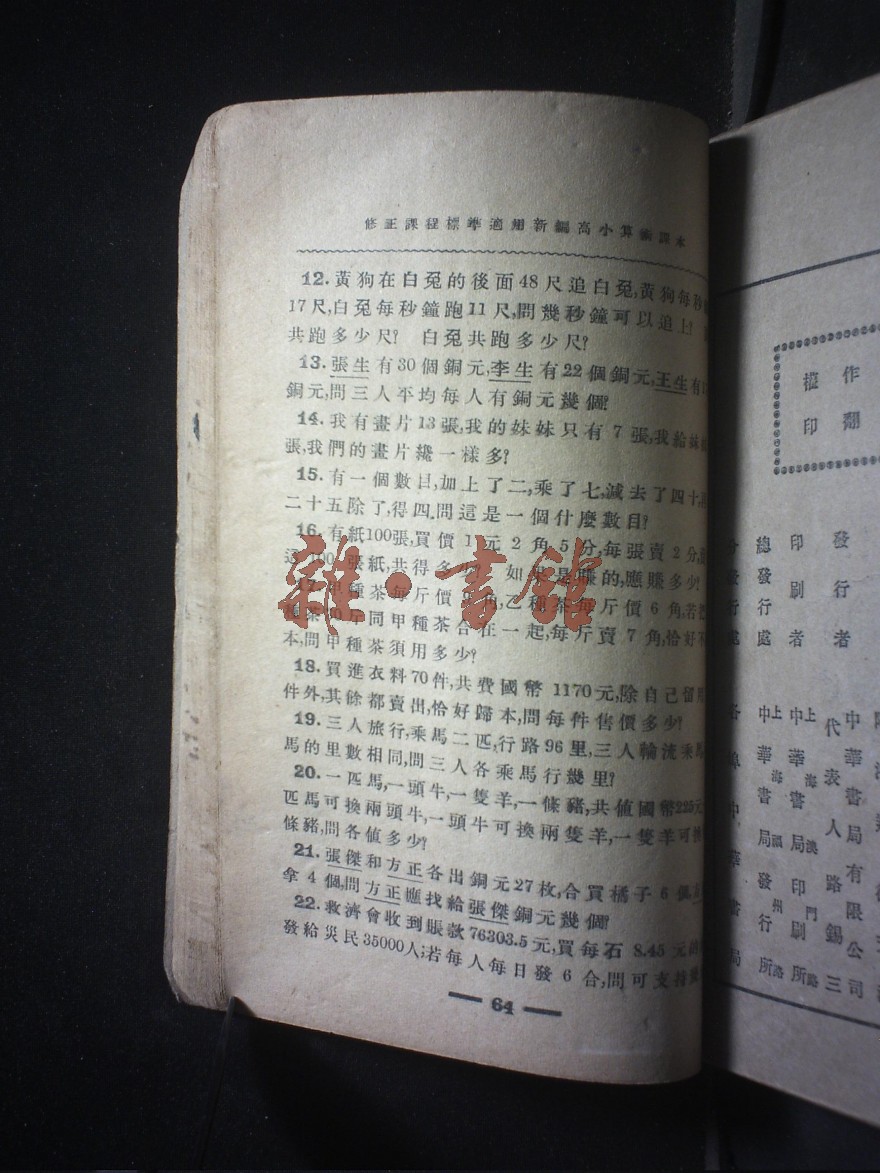 修正課程標準適用新編高小算術課本
12.黃狗在白兔的後面48尺追白兔,黃狗每秒
17尺,白兔每秒鐘跑11尺,問幾秒鐘可以追上?
共跑多少尺? 白兔共跑多少尺?
13.張生有30個銅元,李生有22個銅元,王生有
銅元,問三人平均每人有銅元幾個?
14.我有畫片13張,我的妹妹只有7張,我給妹
張,我們的畫片纔一樣多?
15.有一個數目,加上了二,乘了七,減去了四十,
二十五除了,得四,問這是一個什麼數目?
16.有紙100張,買價1元2角5分,每張賣2分,
這100張紙,共得多少? 如果是賺的,應賺多少?
17.甲種茶每斤價 角,乙種茶每斤價6角,若
種茶 斤同甲種茶合在一起,每斤賣7角,恰好不
本,問甲種茶須用多少?
18.買進衣料70件,共費國幣1170元,除自己留用
件外,其餘都賣出,恰好歸本,問每件售價多少?
19.三人旅行,乘馬二匹,行路96里,三人輪流乘馬
馬的里數相同,問三人各乘馬行幾里?
20.一匹馬,一頭牛,一隻羊,一條豬,共值國幣225元
匹馬可換兩頭牛,一頭牛可換兩隻羊,一隻羊可換
條豬,問各值多少?
21.張傑和方正各出銅元27枚,合買橘子6個,
拿4個,問方正應找給張傑銅元幾個?
22.救濟會收到賬款76303.5元,買每石8.45元
發給災民35000人;若每人每日發6合,問可支持
64
雜·書館
作 翻
權 印
發行者
印刷者
總發行處
分發行處
中華書局有限公司
代表人 路錫三
上海澳門路
中華書局印刷所
上海福州路
中華書局發行所
各埠中華書局